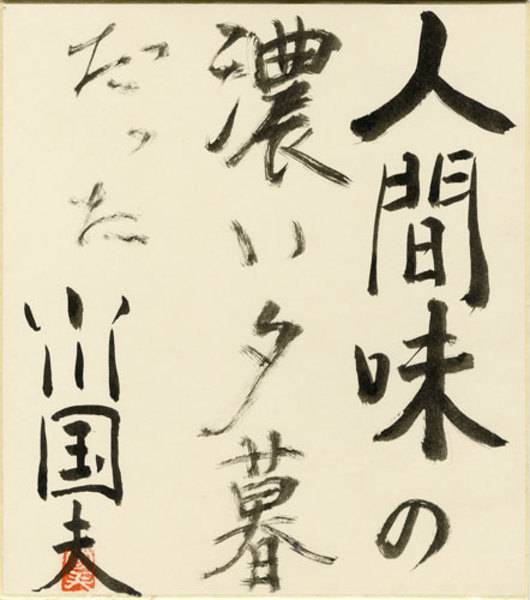 人間味の
濃い夕暮
だった
小川国夫